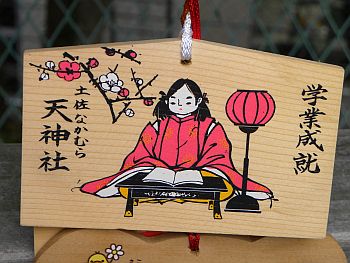 学業成就
土佐なかむら
天神社